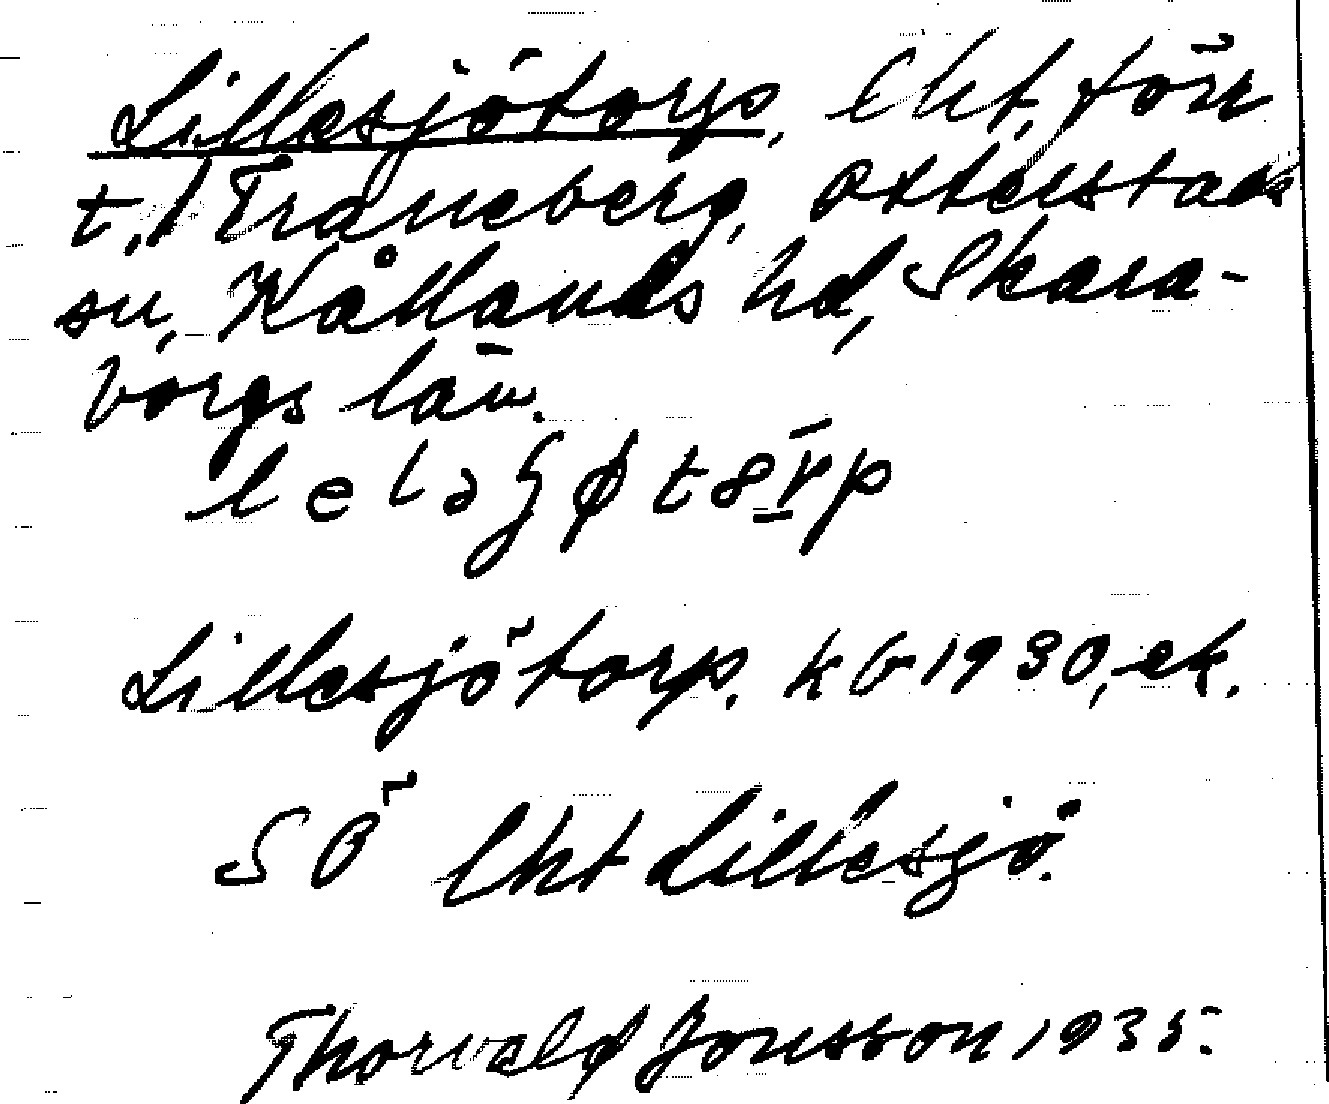 Lillesjötorp, lht, förr
t. 1 Traneberg, Otterstads
sn, Kållands hd, Skara-
borgs län.
Lillesjötorp. kb 1930, ek.
SO lht Lillesjö.
Thorvald Jonsson 1935.